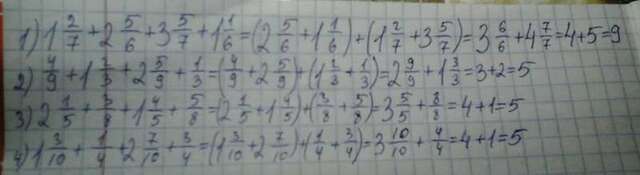 1) 1 2/7 + 2 5/6 + 3 5/7 + 1 1/6 = (2 5/6 + 1 1/6) + (1 2/7 + 3 5/7) = 3 6/6 + 4 7/7 = 4+5=9
2) 4/9 + 1 2/3 + 2 5/9 + 1/3 = (4/9 + 2 5/9) + (1 2/3 + 1/3) = 2 9/9 + 1 3/3 = 3+2=5
3) 2 1/5 + 3/8 + 1 4/5 + 5/8 = (2 1/5 + 1 4/5) + (3/8 + 5/8) = 3 5/5 + 8/8 = 4+1=5
4) 1 3/10 + 1/4 + 2 7/10 + 3/4 = (1 3/10 + 2 7/10) + (1/4 + 3/4) = 3 10/10 + 4/4 = 4+1=5